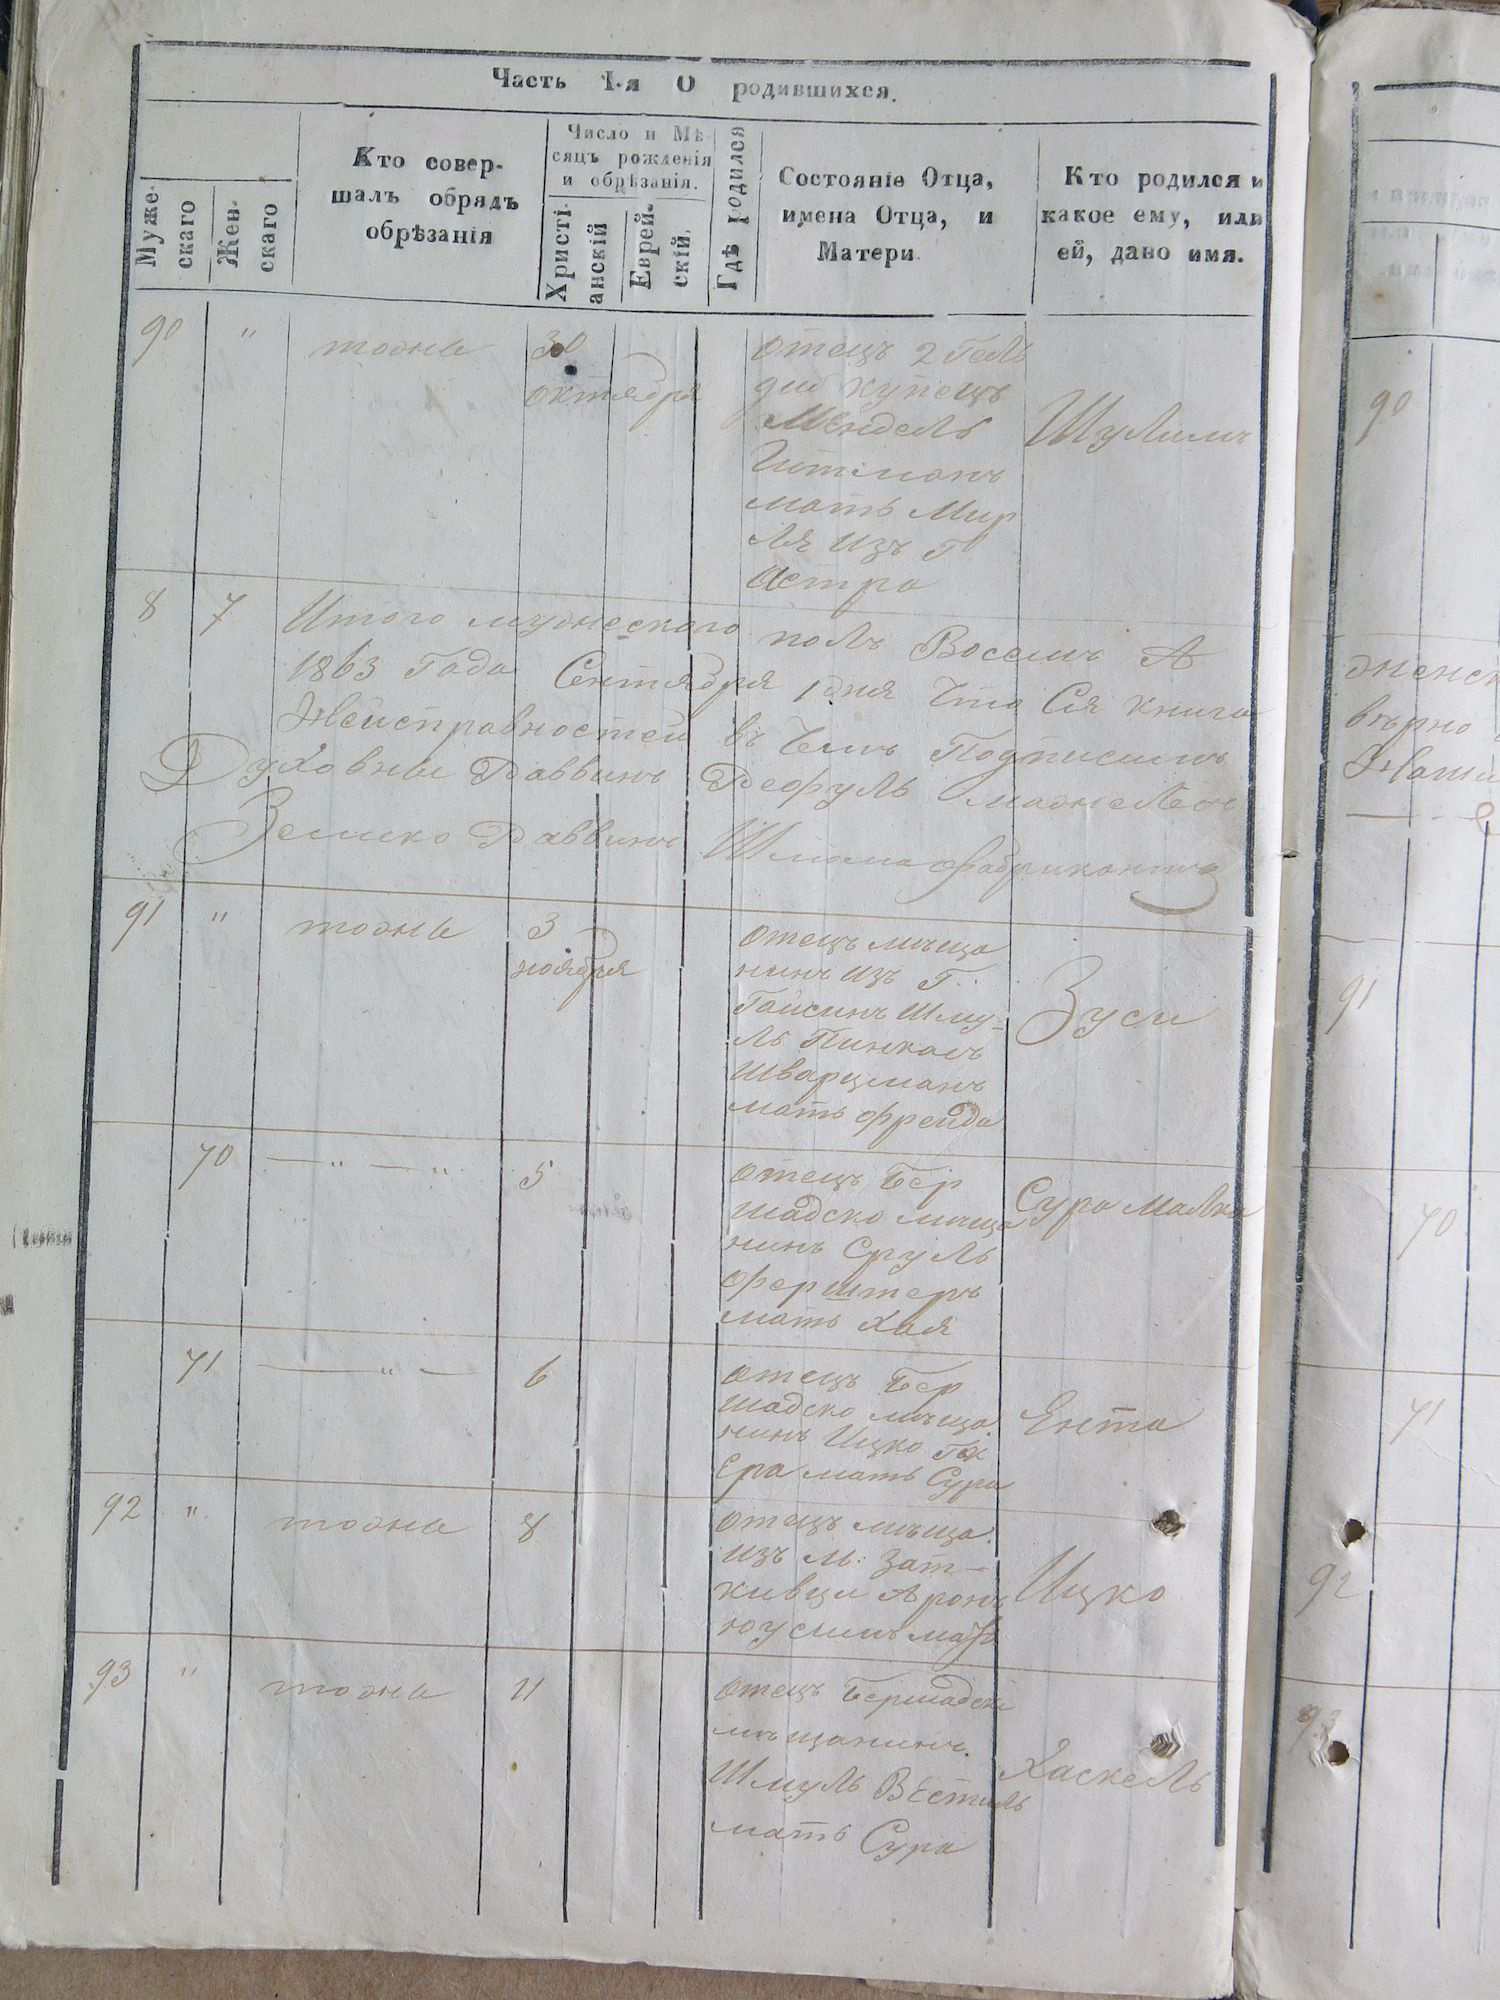 Часть 1-я О родившихся.
Муже-
скаго
Жен-
скаго
Кто совер-
шалъ обрядъ
обрѣзанія
Число и Мѣ-
сяцъ рожденія
и обрѣзанія.
Христі-
анскій
Еврей-
скій.
Гдѣ родился
Состояніе Отца,
имена Отца, и
Матери
Кто родился и
какое ему, или
ей, дано имя.
90 " тотже 30
октября
отецъ 2 Гель
дий купецъ
Мендель
Гитманъ
мать Мир
ля изъ Г
Остра
Шулимъ
8 7 Итого мужеского полъ Восемъ А
1863 Года Сентября 1 дня Что Сия книга
Неисправностей въ Чемъ Подписимъ
Духовны Раввинъ Рефуль
Земско Раввинъ Шлёма Фабрикантъ
91 " тотже 3
ноября
отецъ мѣща
нинъ изъ Г.
Гайсинъ Шму-
ль Пинхасъ
Шварцманъ
мать Фрейда
Зуси
70 — " — " 5
отецъ Бер
шадско мѣща
нинъ Сруль
Ферштеръ
мать Хая
Сура Малка
71 — " — 6
отецъ Бер
шадско мѣща
нинъ Ицко
мать Сура
Ента
92 " тотже 8
отецъ мѣща.
изъ м: Зат-
кивци Аронъ
мать
Ицко
93 " тотже 11
отецъ Бершадски
мѣщанинъ.
Шмуль
мать Сура
Хаскель
90
вѣрно
91
70
71
92
93